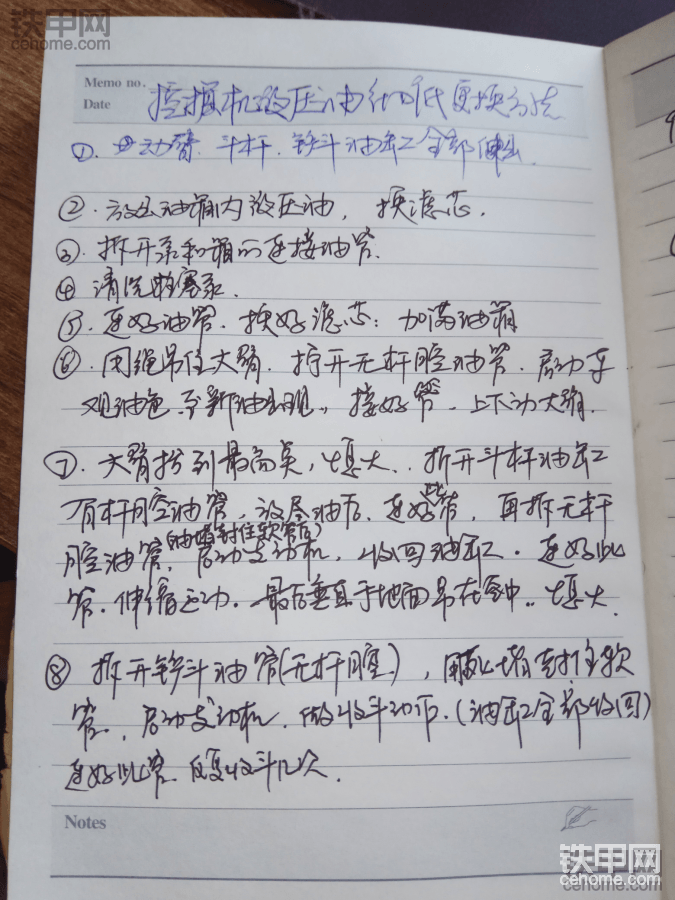 铁甲网
cehome.com
Memo no.
Date
挖掘机液压油彻底更换方法
①. 动臂. 斗杆. 铲斗油缸全部伸出.
②. 放出油箱内液压油, 换滤芯.
③. 拆开泵和箱的连接油管.
④ 清洗柱塞泵.
⑤. 连好油管. 换好滤芯: 加满油箱
⑥. 用绳吊住大臂. 拧开无杆腔油管. 启动车
观油色 至新油出现。接好管. 上下动大臂.
⑦. 大臂抬到最高点, 熄火. 拆开斗杆油缸
有杆腔油管, 放尽油后. 连好此管, 再拆无杆
腔油管, (油堵封住软管后) 启动发动机, 收回油缸. 连好此
管. 伸缩运动. 最后垂直于地面吊在空中。熄火.
⑧ 拆开铲斗油管(无杆腔), 用堵封住软
管, 启动发动机. 做收斗动作. (油缸全部收回)
连好此管. 反复收斗几次.
Notes
铁甲网
cehome.com